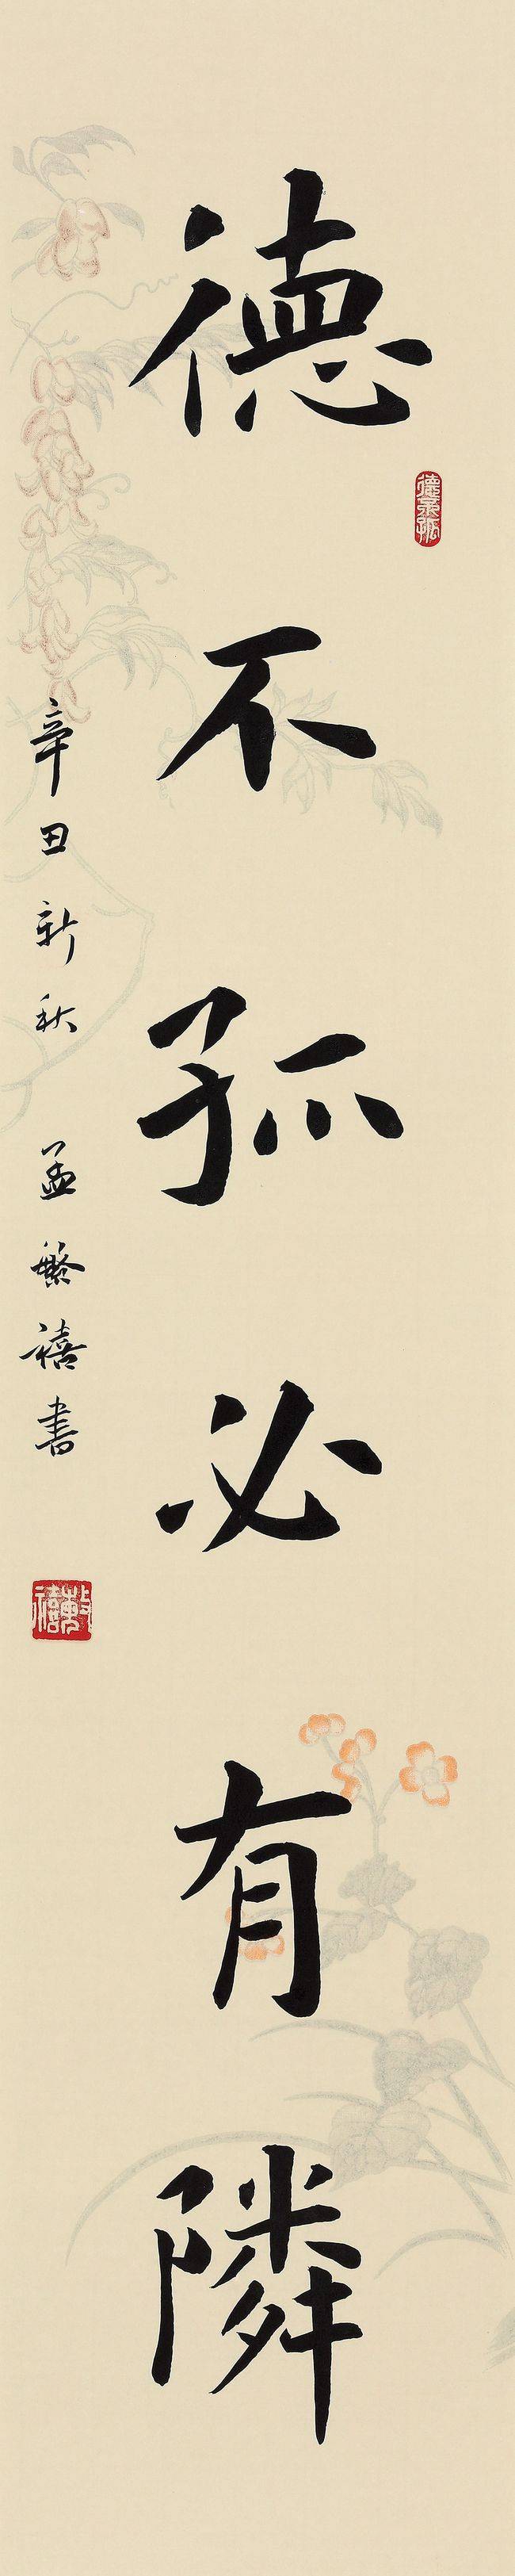 德不孤必有隣
德不孤
辛丑新秋 孟繁禧书
繁禧